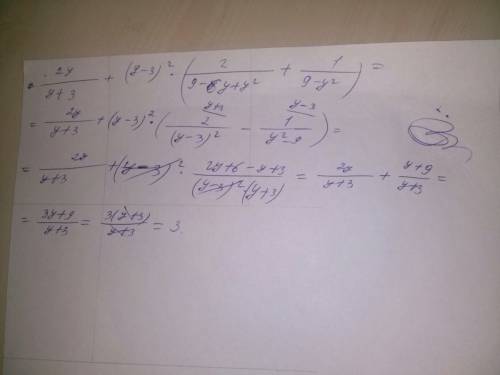 2y/(y+3) + (y-3)² · (2/(9-6y+y²) + 1/(9-y²)) =
= 2y/(y+3) + (y-3)² · (2/(y-3)² - 1/(y²-9)) =
= 2y/(y+3) + (y-3)² · (2y+6-y+3)/((y-3)²(y+3)) = 2y/(y+3) + (y+9)/(y+3) =
= (3y+9)/(y+3) = 3(y+3)/(y+3) = 3.